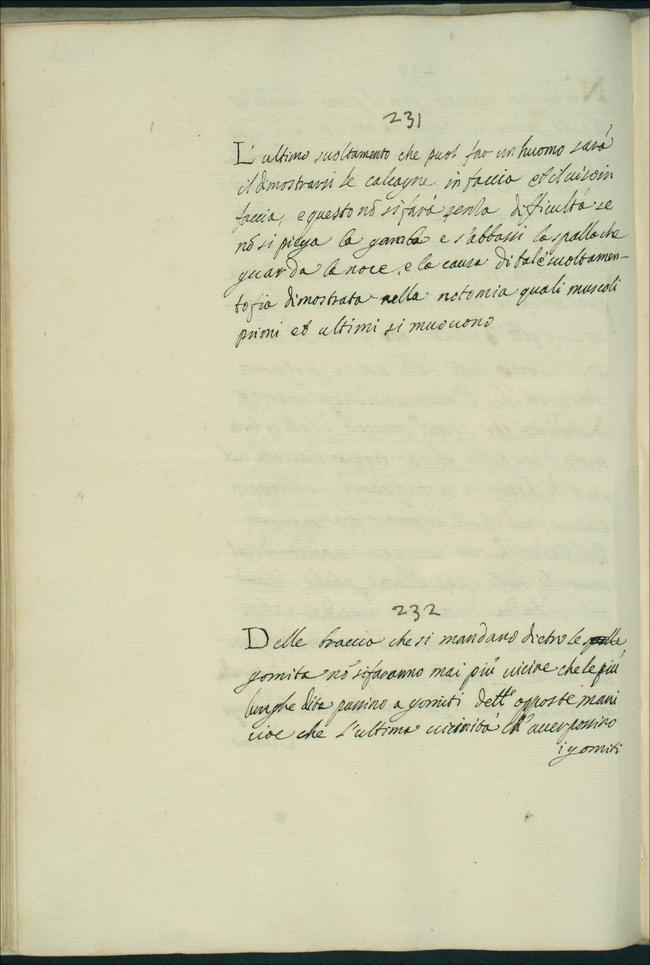 231
L'ultimo suoltamento che puol far un huomo sarà
il dimostrarsi le calcagne in faccia et il uiso in
faccia, e questo nō si farà senza difficultà se
nō si piega la gamba e s'abbassi la spalla che
guarda la noce, e la causa di tale suoltamen-
to fia dimostrata nella notomia quali muscoli
primi et ultimi si muouono
232
Delle braccia che si mandano dietro le
gomita nō si faranno mai più uicine che le più
lunghe dita passino a gomiti dell' opposte mani
cioe che l'ultima uicinità ch' auer possino
i gomiti